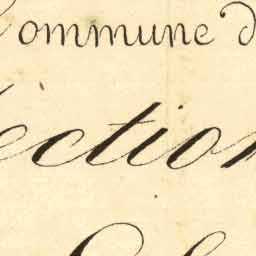 Commune d
ection